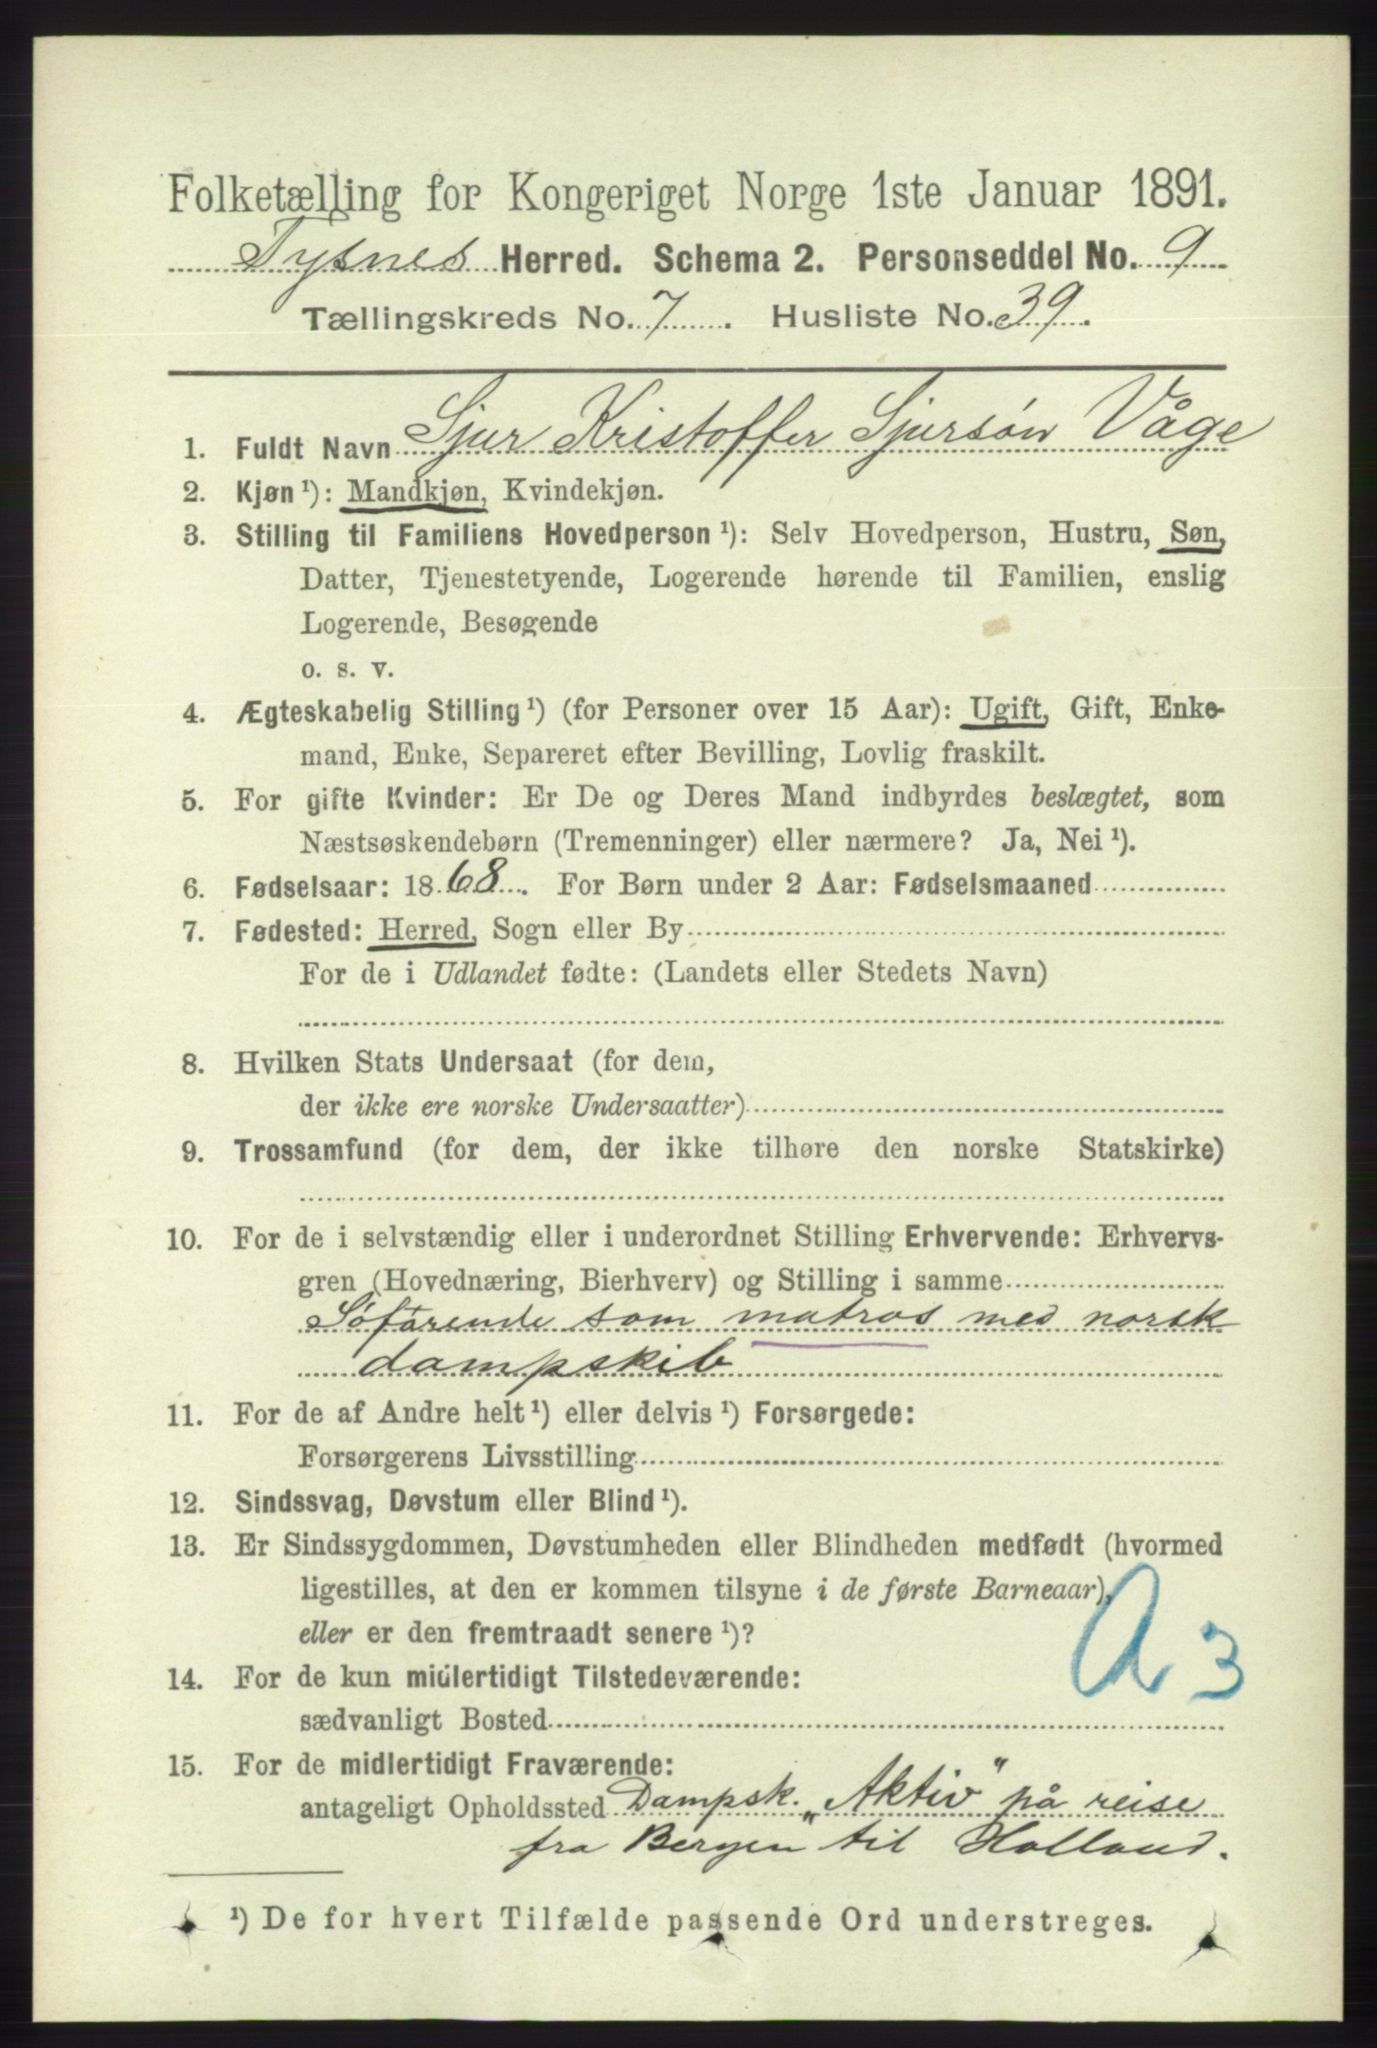 Folketælling for Kongeriget Norge 1ste Januar 1891.
Tysnes Herred. Schema 2. Personseddel No. 9
Tællingskreds No. 7. Husliste No. 39.
1. Fuldt Navn Sjur Kristoffer Sjursøn Våge
2. Kjøn ¹): Mandkjøn, Kvindekjøn.
3. Stilling til Familiens Hovedperson ¹): Selv Hovedperson, Hustru, Søn,
Datter, Tjenestetyende, Logerende hørende til Familien, enslig
Logerende, Besøgende
o. s. v.
4. Ægteskabelig Stilling ¹) (for Personer over 15 Aar): Ugift, Gift, Enke-
mand, Enke, Separeret efter Bevilling, Lovlig fraskilt.
5. For gifte Kvinder: Er De og Deres Mand indbyrdes beslægtet, som
Næstsøskendebørn (Tremenninger) eller nærmere? Ja, Nei ¹).
6. Fødselsaar: 1868. For Børn under 2 Aar: Fødselsmaaned
7. Fødested: Herred, Sogn eller By
For de i Udlandet fødte: (Landets eller Stedets Navn)
8. Hvilken Stats Undersaat (for dem,
der ikke ere norske Undersaatter)
9. Trossamfund (for dem, der ikke tilhøre den norske Statskirke)
10. For de i selvstændig eller i underordnet Stilling Erhvervende: Erhvervs-
gren (Hovednæring, Bierhverv) og Stilling i samme
Søfårende som matros med norsk
dampskib
11. For de af Andre helt ¹) eller delvis ¹) Forsørgede:
Forsørgerens Livsstilling
12. Sindssvag, Døvstum eller Blind ¹).
13. Er Sindssygdommen, Døvstumheden eller Blindheden medfødt (hvormed
ligestilles, at den er kommen tilsyne i de første Barneaar),
eller er den fremtraadt senere ¹)?
A 3
14. For de kun midlertidigt Tilstedeværende:
sædvanligt Bosted
15. For de midlertidigt Fraværende:
antageligt Opholdssted Dampsk. „Aktiv" på reise
fra Bergen til Holland.
¹) De for hvert Tilfælde passende Ord understreges.